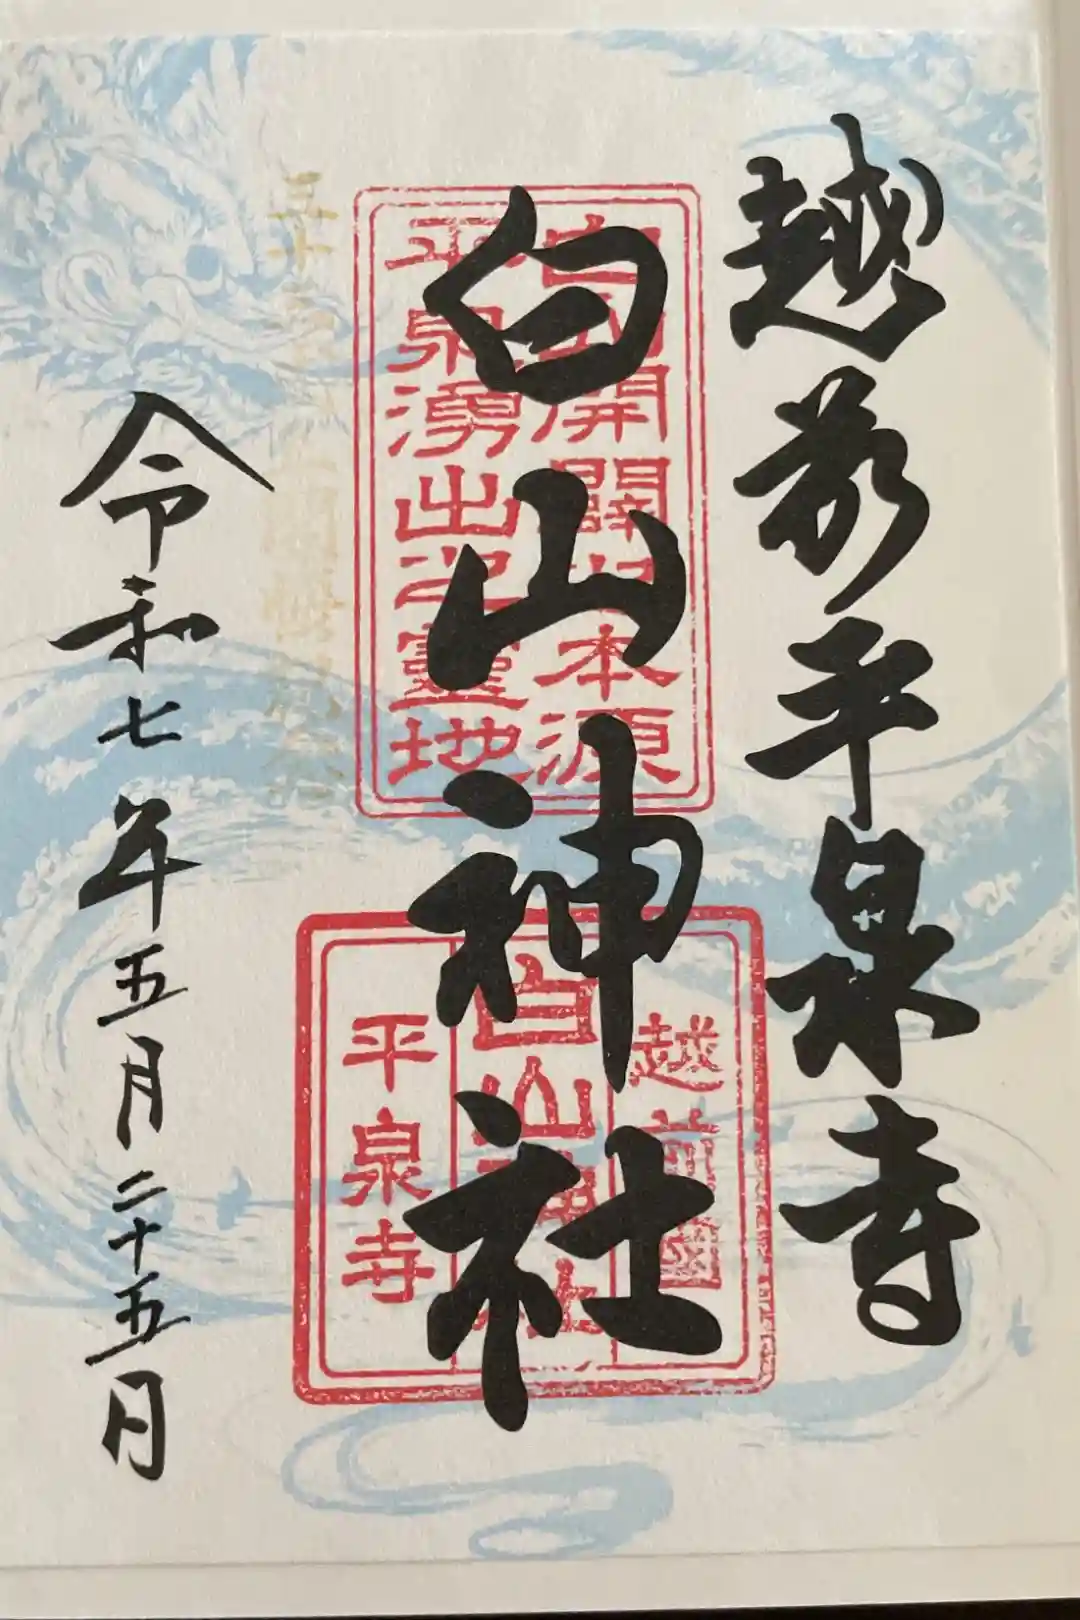 越前平泉寺
白山神社
令和七年五月二十五日
白山開闢之本源
平泉湧出之霊地
越前國
白山神社
平泉寺